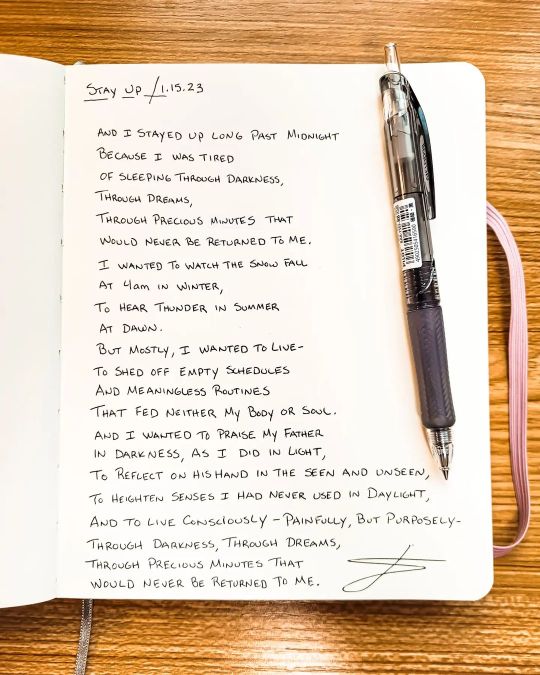 Stay Up / 1.15.23
And I stayed up long past midnight
Because I was tired
of sleeping through darkness,
Through dreams,
Through precious minutes that
would never be returned to me.
I wanted to watch the snow fall
At 4am in winter,
To hear thunder in summer
At dawn.
But mostly, I wanted to live-
To shed off empty schedules
And meaningless routines
That fed neither my body or soul.
And I wanted to praise my Father
in darkness, as I did in light,
To reflect on his hand in the seen and unseen,
To heighten senses I had never used in daylight,
And to live consciously - painfully, but purposely-
Through darkness, through dreams,
Through precious minutes that
would never be returned to me.